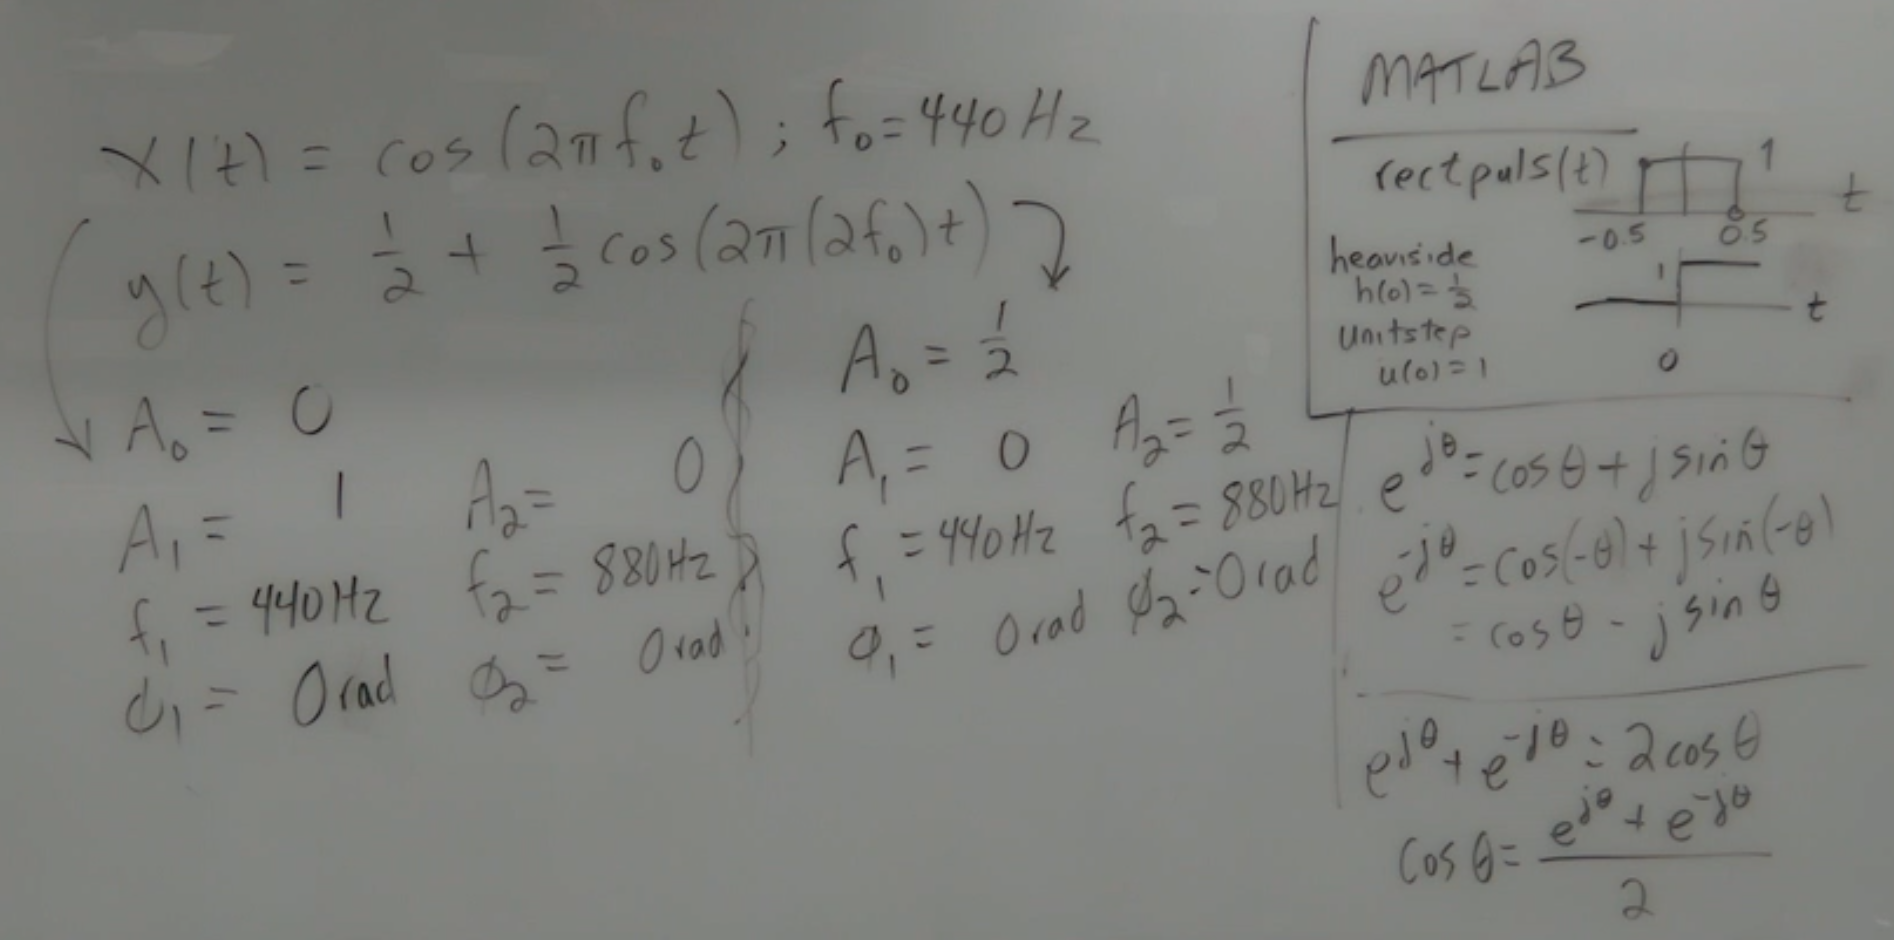 x(t) = cos(2πf₀t) ; f₀ = 440 Hz
y(t) = 1/2 + 1/2 cos(2π(2f₀)t)
A₀ = 0
A₁ = 1 A₂ = 0
f₁ = 440Hz f₂ = 880Hz
ϕ₁ = 0 rad ϕ₂ = 0 rad
A₀ = 1/2
A₁ = 0 A₂ = 1/2
f₁ = 440Hz f₂ = 880Hz
ϕ₁ = 0 rad ϕ₂ = 0 rad
MATLAB
rectpuls(t) 1 t
-0.5 0.5
heaviside
h(0) = 1/2 1 t
unitstep
u(0) = 1 0
e^{jθ} = cosθ + j sinθ
e^{-jθ} = cos(-θ) + j sin(-θ)
= cosθ - j sinθ
e^{jθ} + e^{-jθ} = 2 cosθ
cosθ = (e^{jθ} + e^{-jθ})/2